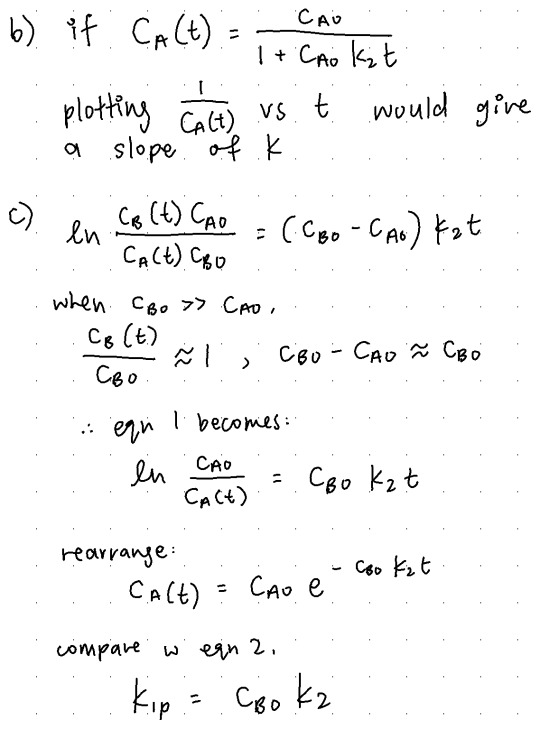 b) if C_A(t) = C_A0 / (1 + C_A0 k_2 t)
plotting 1/C_A(t) vs t would give
a slope of k
c) ln (C_B(t) C_A0) / (C_A(t) C_B0) = (C_B0 - C_A0) k_2 t
when C_B0 >> C_A0,
C_B(t) / C_B0 ≈ 1 , C_B0 - C_A0 ≈ C_B0
∴ eqn 1 becomes:
ln C_A0 / C_A(t) = C_B0 k_2 t
rearrange:
C_A(t) = C_A0 e^(- C_B0 k_2 t)
compare w eqn 2.
k_1p = C_B0 k_2